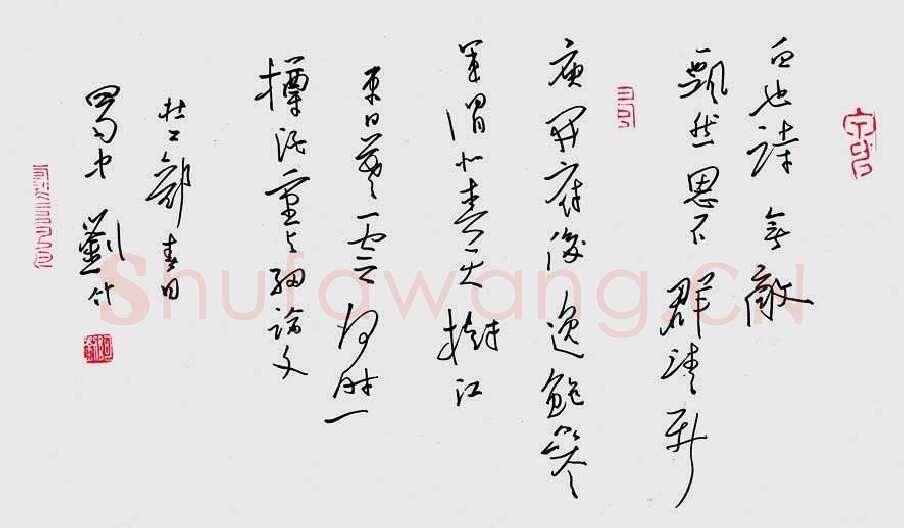 白也詩無敵
飄然思不群清新
庾開府俊逸鮑參
軍渭北春天樹江
東日暮雲何時一
樽酒重与細論文
杜工部春日
蜀中劉竹
Shufawang.CN